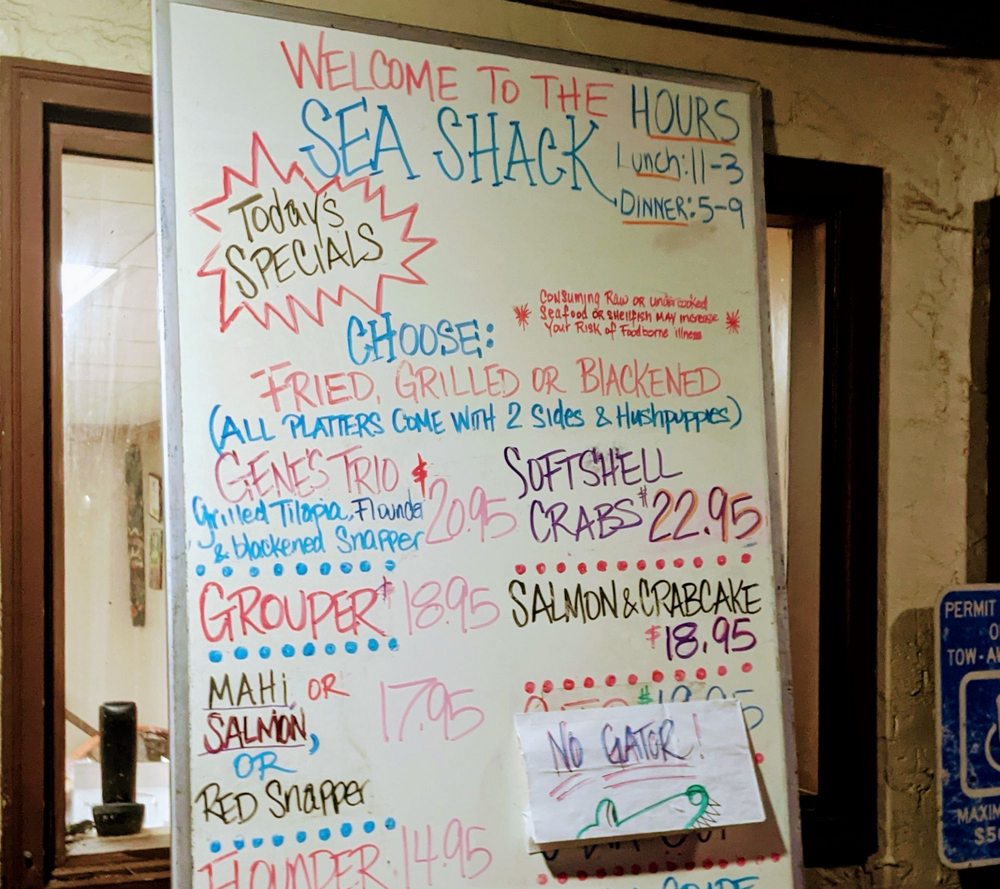 WELCOME TO THE
SEA SHACK
HOURS
Lunch: 11-3
DINNER: 5-9
Today's
SPECIALS
Consuming Raw or undercooked
Seafood or shellfish may increase
Your Risk of Foodborne illness
CHOOSE:
FRIED, GRILLED OR BLACKENED
(ALL PLATTERS COME WITH 2 Sides & Hushpuppies)
GENE'S TRIO $20.95
Grilled Tilapia, Flounder
& blackened Snapper
GROUPER $18.95
MAHI OR
SALMON, 17.95
OR
RED Snapper
FLOUNDER 14.95
SOFTSHELL
CRABS $22.95
SALMON & CRABCAKE
$18.95
NO GATOR!
PERMIT
TOW-A
MAXIM
$5